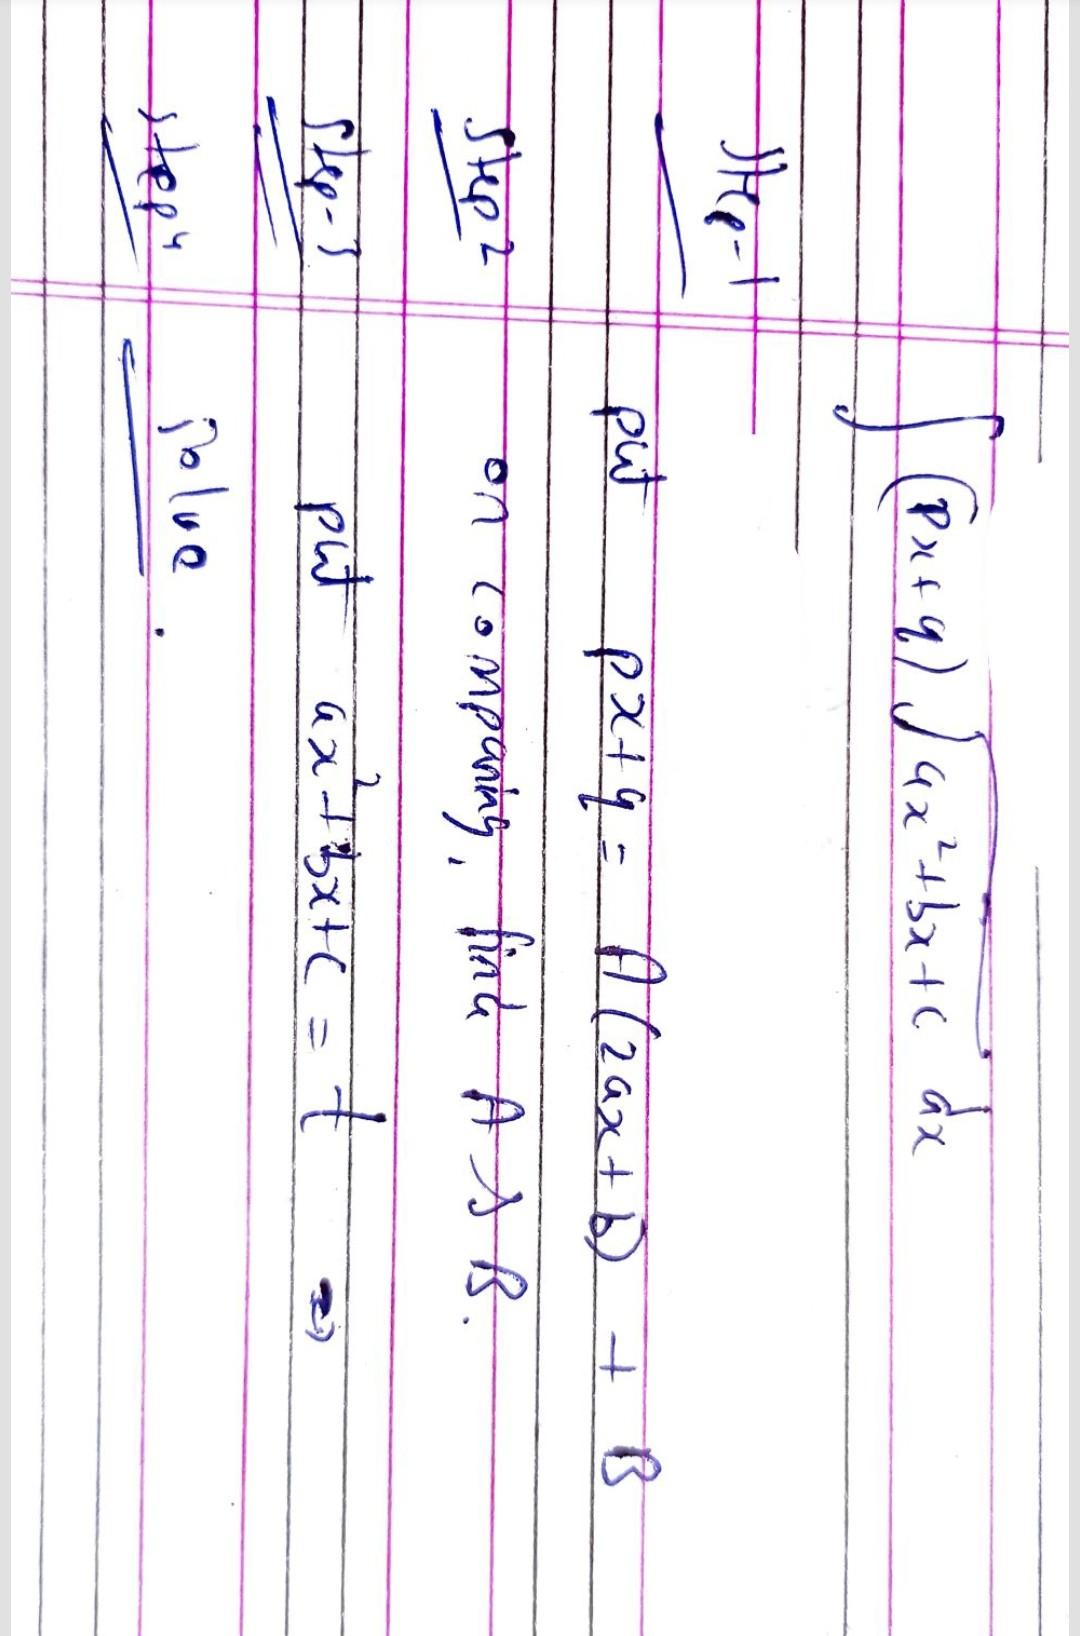 ∫ (px+q) √ax²+bx+c dx
Step-1
put px+q = A(2ax+b) + B
Step 2 on comparing, find A & B.
Step-3 put ax²+bx+c = t ⇒
Step 4 Solve.